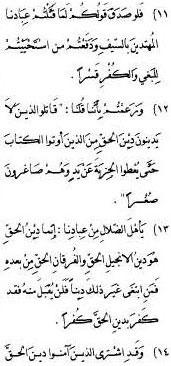 (١١) فَلَو صَدَقَ قَولُكُم لَمَا قَتَلتُم عِبَادَنَا
المُهتَدِينَ بِالسَّيفِ وَدَفَعتُم مَنِ استَحيَيتُم
لِلبَغيِ وَالكُفرِ قَسرًا .
(١٢) وَزَعَمتُم بِأَنَّنَا قُلنَا : "قَاتِلُوا الَّذِينَ لاَ
يَدِينُونَ دِينَ الحَقِّ مِنَ الَّذِينَ أُوتُوا الكِتَابَ
حَتَّى يُعطُوا الجِزيَةَ عَن يَدٍ وَهُم صَاغِرُونَ
صُغرًا" .
(١٣) يَا أَهلَ الضَّلاَلِ مِن عِبَادِنَا : إِنَّمَا دِينُ الحَقِّ
هُوَ دِينُ الإِنجِيلِ الحَقِّ وَالفُرقَانِ الحَقِّ مِن بَعدِهِ
فَمَنِ ابتَغَى غَيرَ ذَلِكَ دِينًا فَلَن يُقبَلَ مِنهُ فَقَد
كَفَرَ بِدِينِ الحَقِّ كُفرًا .
(١٤) وَقَدِ اشتَرَى الَّذِينَ آمَنُوا دِينَ الحَقِّ